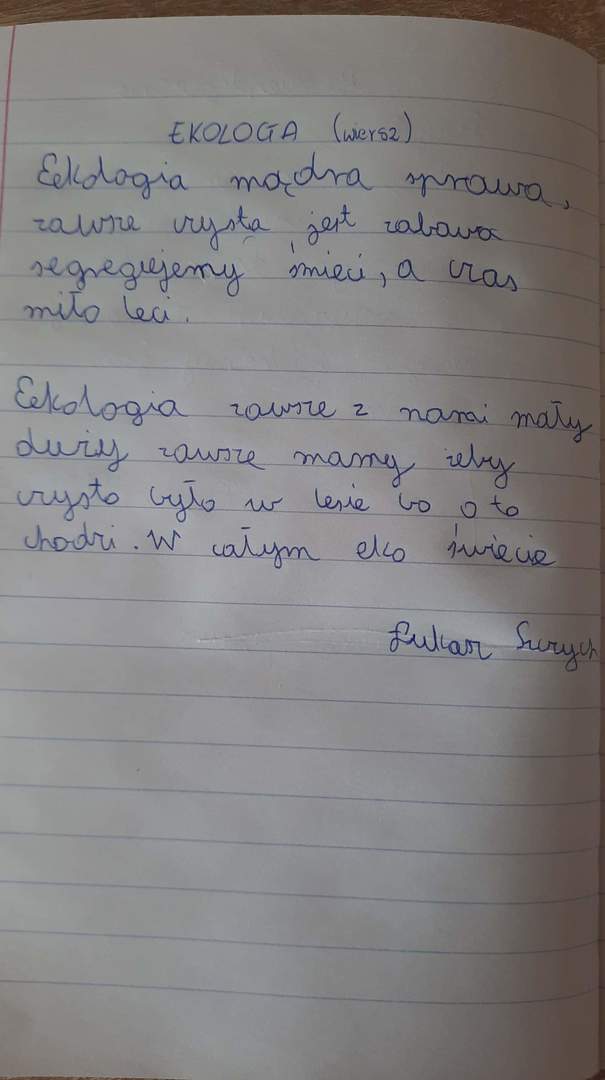 EKOLOGIA (wiersz)
Eekologia mądra sprawa,
zawsze czysta jest zabawa
segregujemy śmieci, a czas
miło leci.
Eekologia zawsze z nami mały
duży zawsze mamy żeby
czysto było w lesie bo o to
chodzi. W całym eko świecie
Łukasz Surych